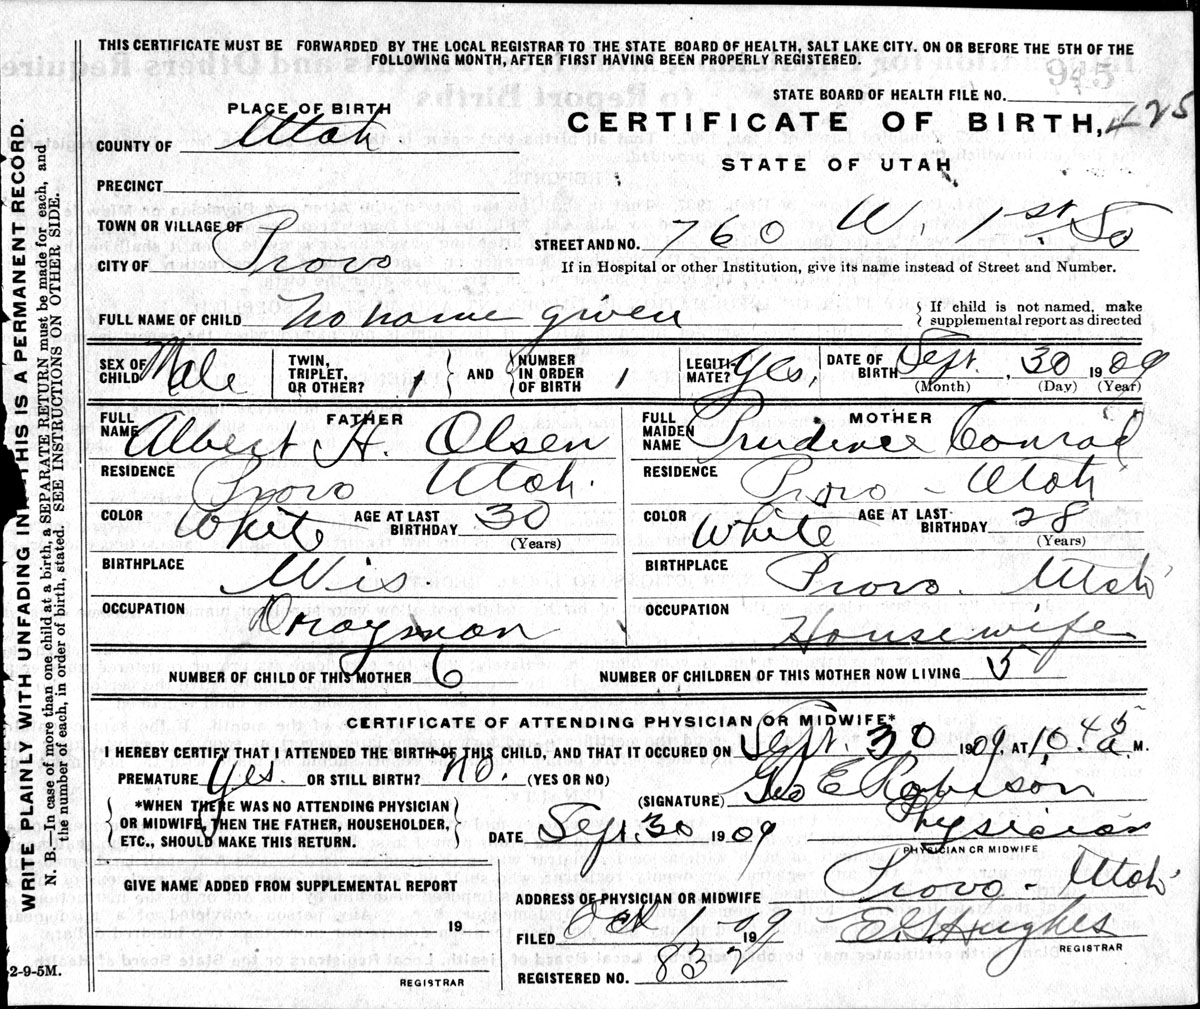 THIS CERTIFICATE MUST BE FORWARDED BY THE LOCAL REGISTRAR TO THE STATE BOARD OF HEALTH, SALT LAKE CITY. ON OR BEFORE THE 5TH OF THE
FOLLOWING MONTH, AFTER FIRST HAVING BEEN PROPERLY REGISTERED.
945
STATE BOARD OF HEALTH FILE NO.
PLACE OF BIRTH
CERTIFICATE OF BIRTH, 425
COUNTY OF Utah
STATE OF UTAH
PRECINCT
TOWN OR VILLAGE OF
STREET AND NO. 760 W. 1st. So
CITY OF Provo
If in Hospital or other Institution, give its name instead of Street and Number.
FULL NAME OF CHILD No name given
If child is not named, make
supplemental report as directed
SEX OF CHILD Male TWIN, TRIPLET, OR OTHER? 1 AND NUMBER IN ORDER OF BIRTH 1 LEGITIMATE? Yes. DATE OF BIRTH Sept. 30 1909
(Month) (Day) (Year)
FATHER MOTHER
FULL NAME Albert H. Olsen FULL MAIDEN NAME Prudence Conrad
RESIDENCE Provo Utah. RESIDENCE Provo - Utah
COLOR White AGE AT LAST BIRTHDAY 30 (Years) COLOR White AGE AT LAST BIRTHDAY 28 (Years)
BIRTHPLACE Wis. BIRTHPLACE Provo. Utah
OCCUPATION Drayman OCCUPATION Housewife
NUMBER OF CHILD OF THIS MOTHER 6 NUMBER OF CHILDREN OF THIS MOTHER NOW LIVING 5
CERTIFICATE OF ATTENDING PHYSICIAN OR MIDWIFE*
I HEREBY CERTIFY THAT I ATTENDED THE BIRTH OF THIS CHILD, AND THAT IT OCCURED ON Sept. 30 1909, AT 10.45 a M.
PREMATURE Yes. OR STILL BIRTH? No. (YES OR NO)
(SIGNATURE) Geo E Robison
*WHEN THERE WAS NO ATTENDING PHYSICIAN
OR MIDWIFE, THEN THE FATHER, HOUSEHOLDER,
ETC., SHOULD MAKE THIS RETURN.
DATE Sept. 30 1909
Physician
PHYSICIAN OR MIDWIFE
GIVE NAME ADDED FROM SUPPLEMENTAL REPORT
19
REGISTRAR
ADDRESS OF PHYSICIAN OR MIDWIFE Provo - Utah
FILED Oct 19
REGISTERED NO.
Hughes
REGISTRAR
2-9-5M.
WRITE PLAINLY WITH UNFADING IN THIS IS A PERMANENT RECORD.
N. B.—In case of more than one child at a birth, a SEPARATE RETURN must be made for each, and
the number of each, in order of birth, stated. SEE INSTRUCTIONS ON OTHER SIDE.